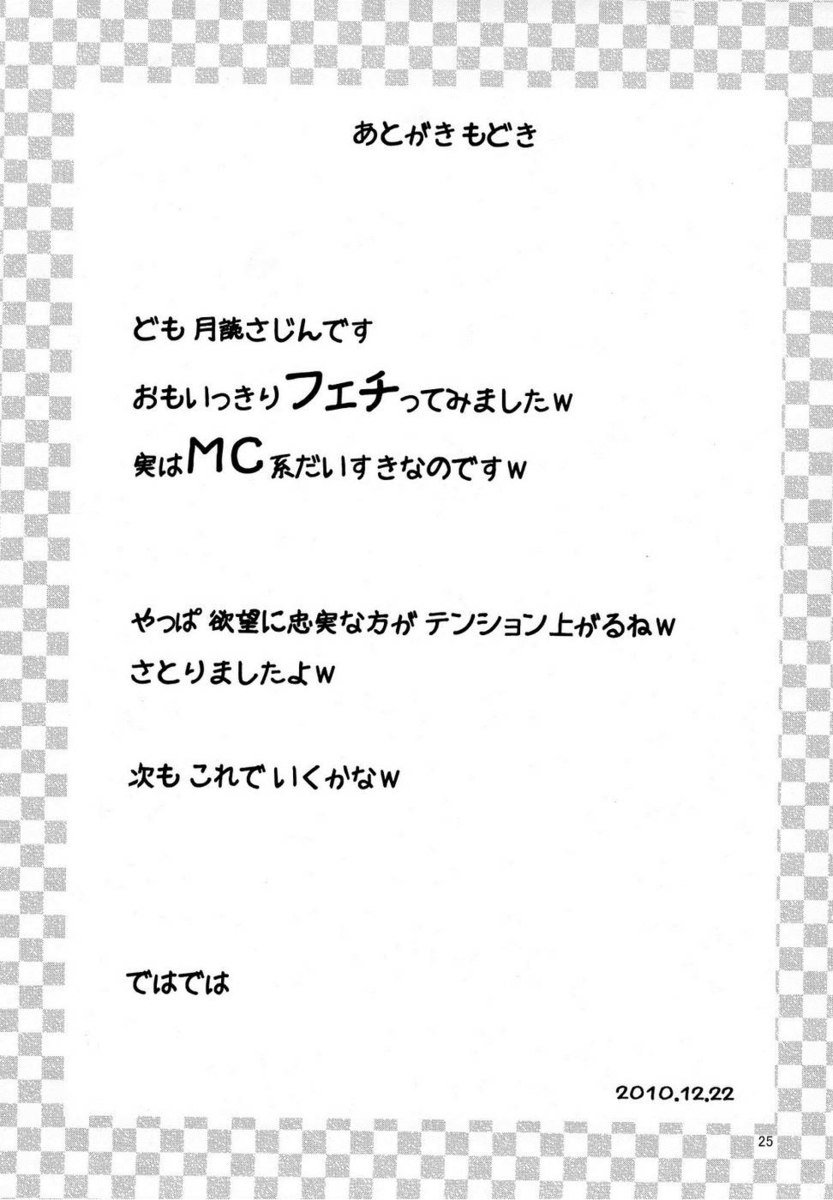 あとがきもどき
ども 月詠さじんです
おもいっきりフェチってみましたw
実はMC系だいすきなのですw
やっぱ 欲望に忠実な方が テンション上がるねw
さとりましたよw
次も これで いくかなw
ではでは
2010.12.22
25